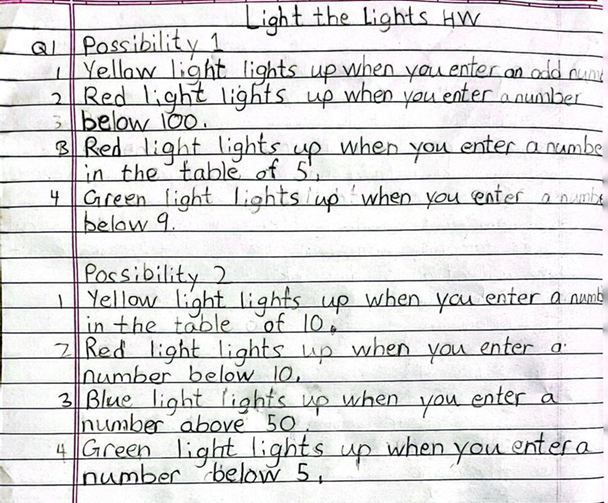 Light the Lights HW
Q1 Possibility 1
1 Yellow light lights up when you enter an odd
2 Red light lights up when you enter a number
3 below 100.
B Red light lights up when you enter a numbe
in the table of 5.
4 Green light lights up when you enter a numbe
below 9.
Possibility 2
1 Yellow light lights up when you enter a numb
in the table of 10.
2 Red light lights up when you enter a
number below 10.
3 Blue light lights up when you enter a
number above 50.
4 Green light lights up when you enter a
number below 5.